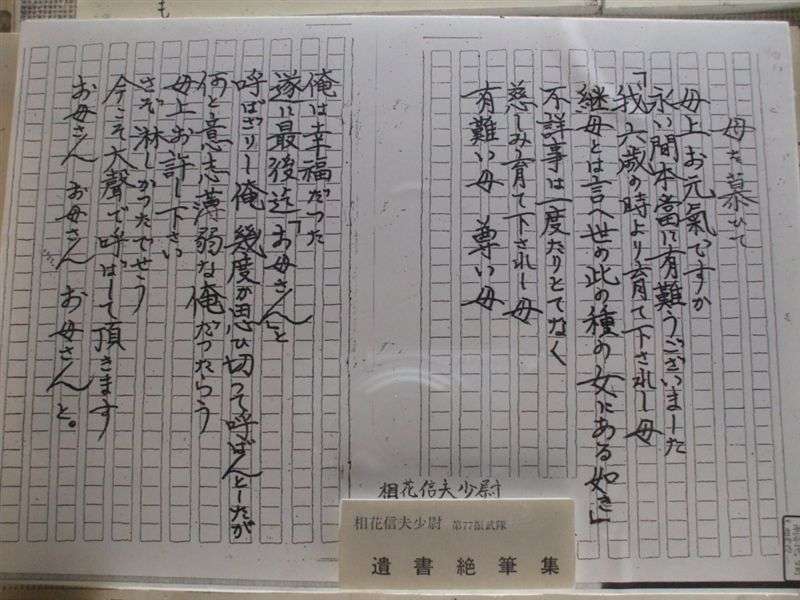 母を慕ひて
母上お元氣ですか
永い間本當に有難うございました
「我六歳の時より育て下されし母
継母とは言へ世の此の種の女にある如き」
不詳事は一度たりとてなく
慈しみ育て下されし母
有難い母 尊い母
俺は幸福だった
遂に最後迄「お母さん」と
呼ばざりし俺 幾度か思ひ切って呼ばんとしたが
何と意志薄弱な俺だったらう
母上お許し下さい
さぞ淋しかったでせう
今こそ大聲で呼ばして頂きます
お母さん お母さん お母さんと。
相花信夫少尉
相花信夫少尉 第77振武隊
遺書絶筆集